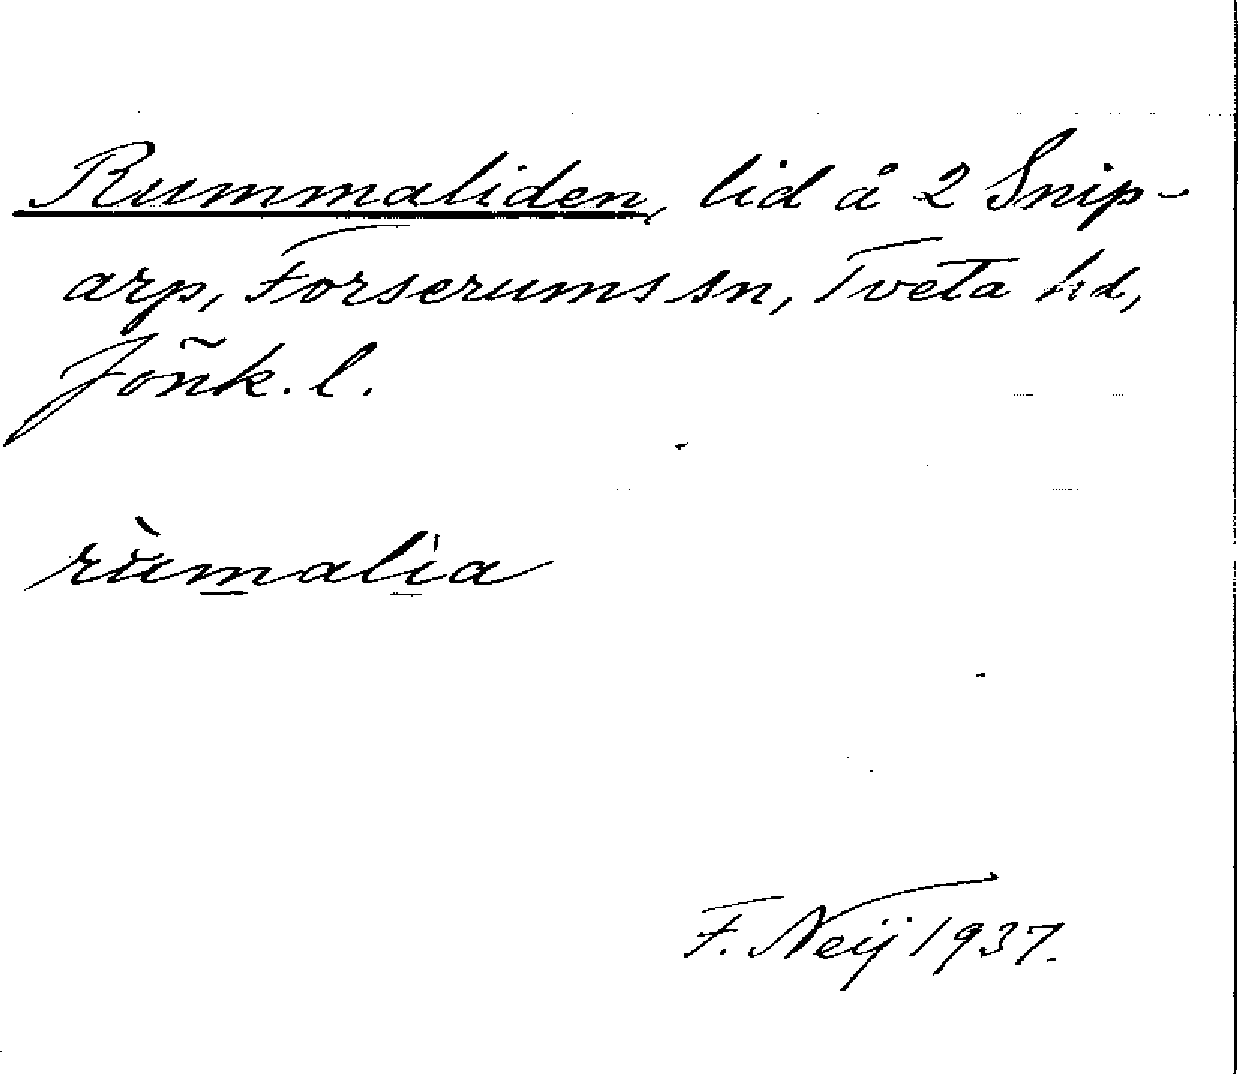 Rummaliden, lid å 2 Snip-
arp, Forserums sn, Tveta hd,
Jönk. l.
rùmalia
F. Neij 1937.